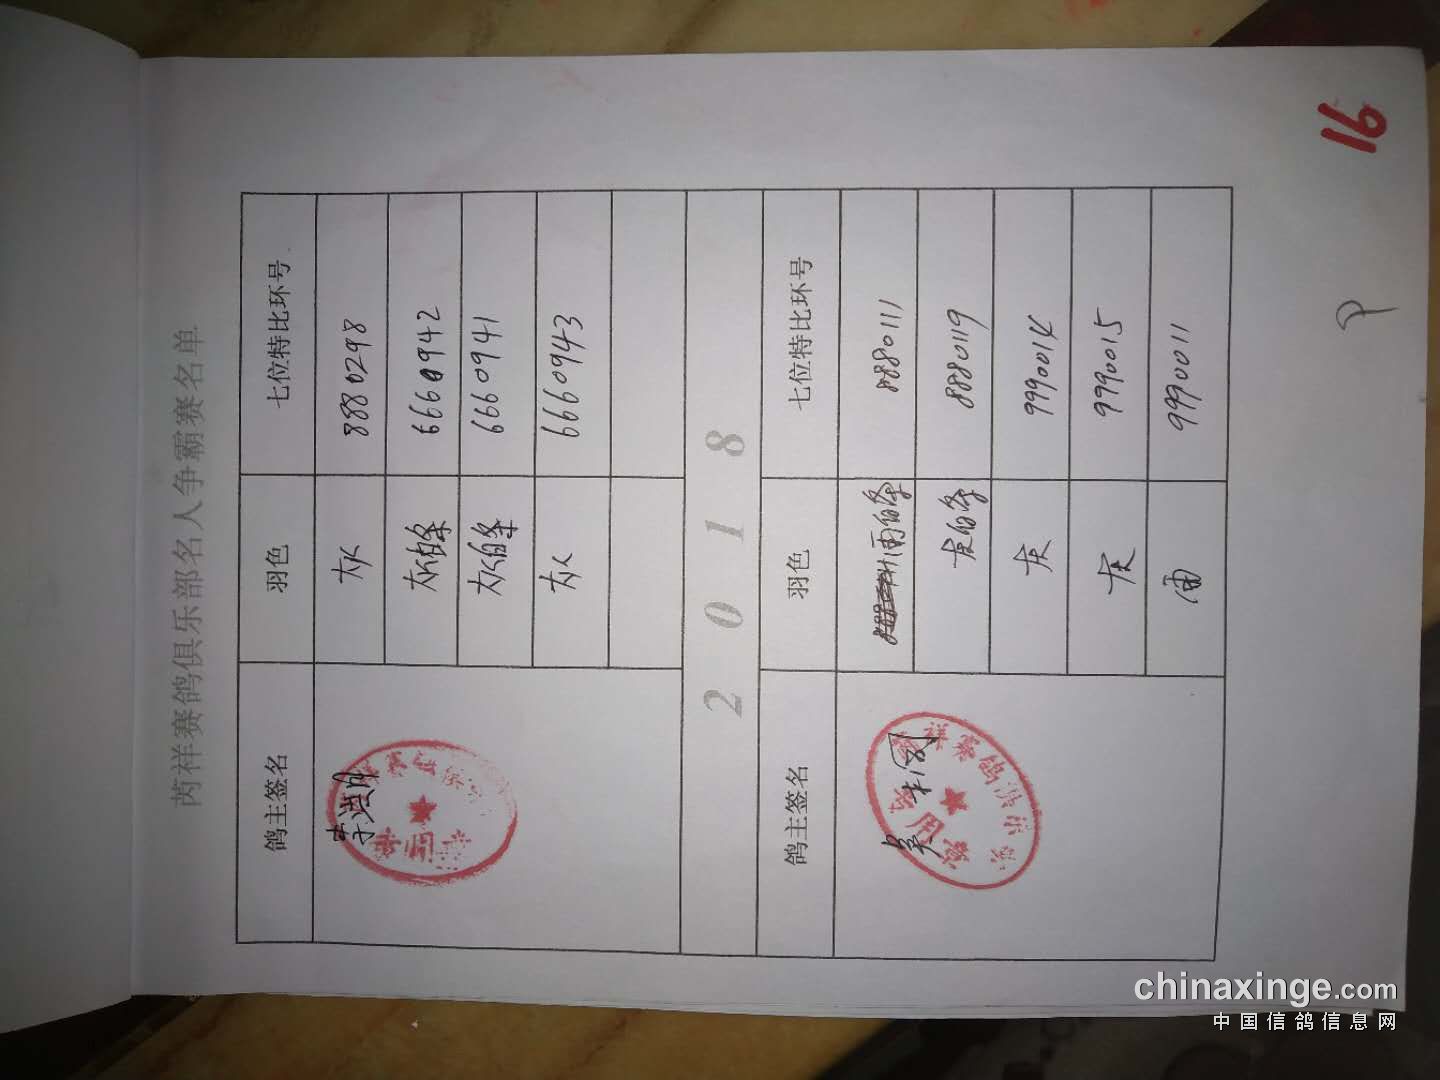 芮祥赛鸽俱乐部名人争霸赛名单
鸽主签名 羽色 七位特比环号
灰 8880298
灰白条 6660942
灰白条 6660941
灰 6660943
2018
鸽主签名 羽色 七位特比环号
雨白条 8880111
灰白条 8880119
灰 9990014
灰 9990015
雨 9990011
16
chinaxinge.com
中国信鸽信息网